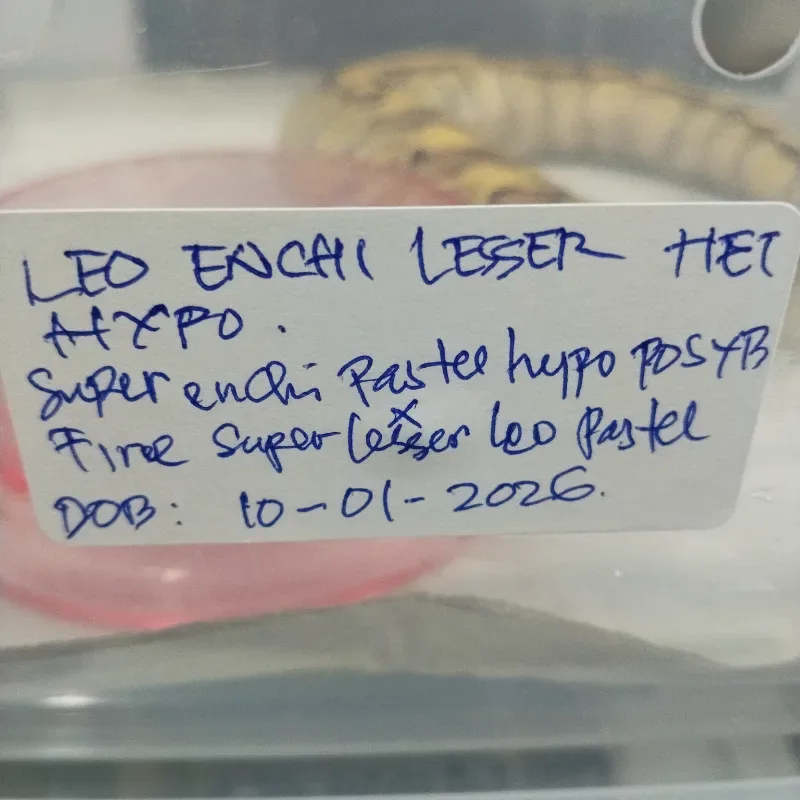 LEO ENCHI LESSER HET
HYPO.
Super enchi Pastel hypo POS YB
x
Fire Super Lesser Leo Pastel
DOB: 10-01-2026.